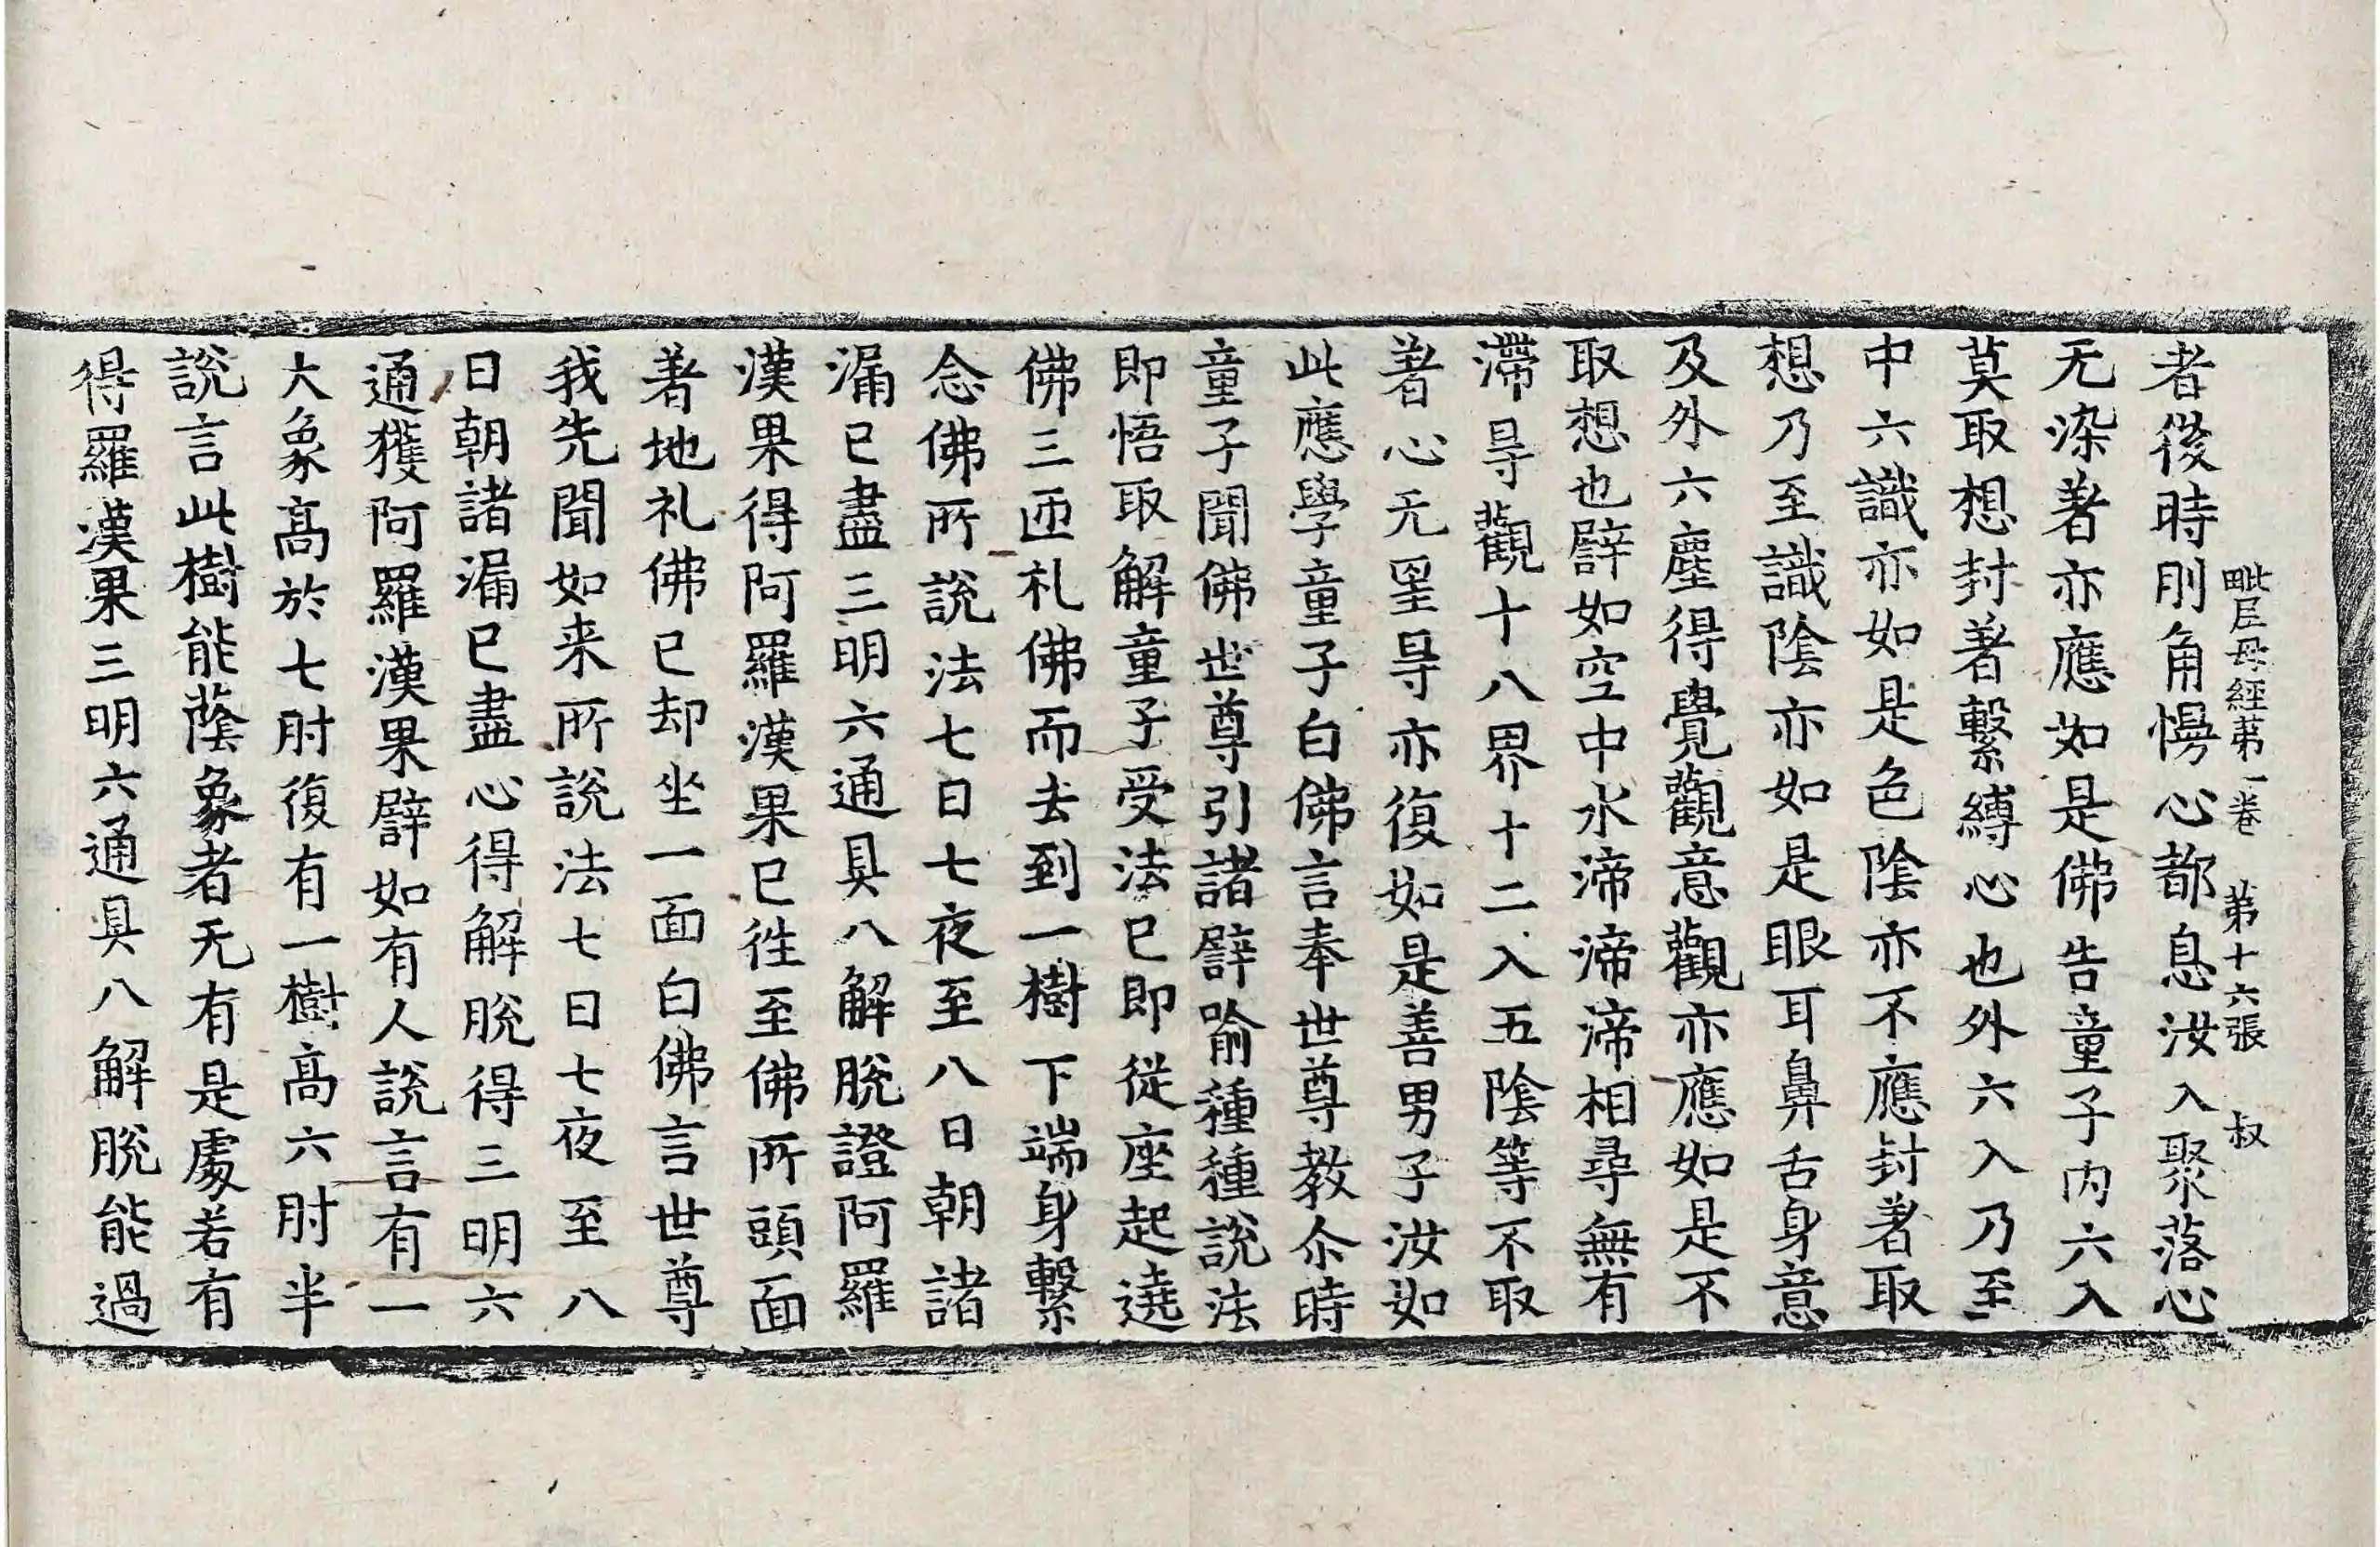 毗尼母經苐一卷 苐十六張 叔
者後時則角慢心都息汝入聚落心
无染著亦應如是佛告童子内六入
莫取想封著繫縛心也外六入乃至
中六識亦如是色陰亦不應封著取
想乃至識陰亦如是眼耳鼻舌身意
及外六塵得覺觀意觀亦應如是不
取想也譬如空中水渧渧渧相尋無有
滯㝵觀十八界十二入五陰等不取
著心无罣㝵亦復如是善男子汝如
此應學童子白佛言奉世尊教尒時
童子聞佛世尊引諸譬喻種種說法
即悟取解童子受法已即從座起遶
佛三匝礼佛而去到一樹下端身繫
念佛所說法七日七夜至八日朝諸
漏已盡三明六通具八解脫證阿羅
漢果得阿羅漢果已往至佛所頭面
著地礼佛已却坐一面白佛言世尊
我先聞如来所說法七日七夜至八
日朝諸漏已盡心得解脫得三明六
通獲阿羅漢果譬如有人說言有一
大象高於七肘復有一樹高六肘半
說言此樹能蔭象者无有是處若有
得羅漢果三明六通具八解脫能過